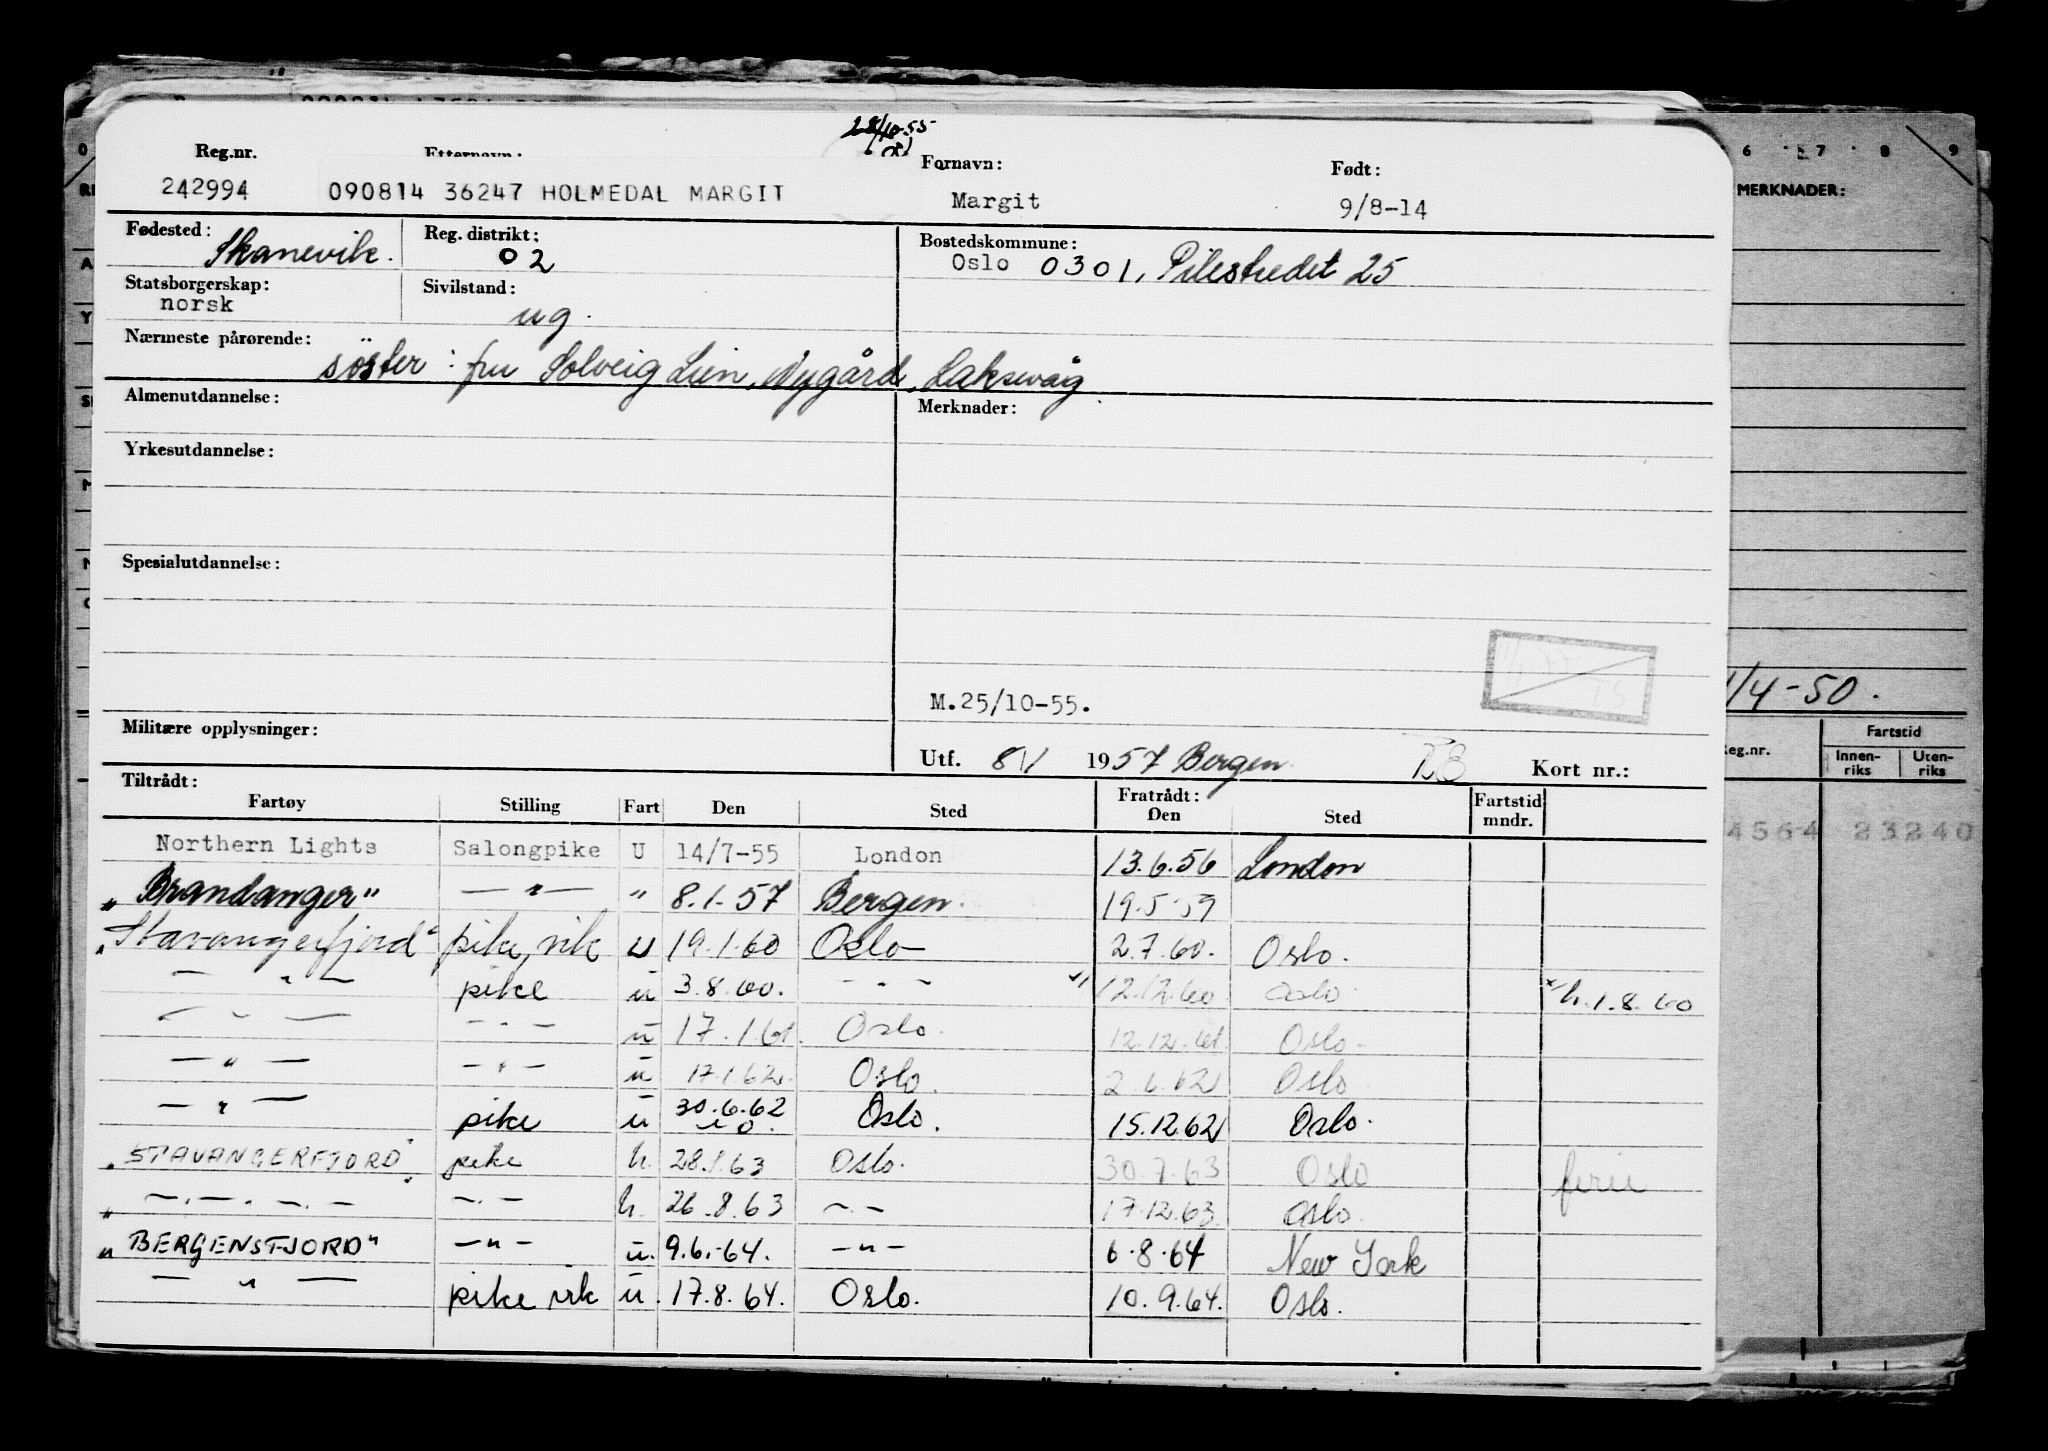 28/10-55
Reg.nr. Etternavn: Fornavn: Født:
242994 090814 36247 HOLMEDAL MARGIT Margit 9/8-14
Fødested: Skånevik. Reg. distrikt: 02 Bostedskommune: Oslo 0301, Pilestredet 25
Statsborgerskap: norsk Sivilstand: ug.
Nærmeste pårørende: söster: fru Solveig Lien, Nygård, Laksevåg
Almenutdannelse: Merknader:
Yrkesutdannelse:
Spesialutdannelse:
M.25/10-55.
Militære opplysninger:
Utf. 8/1 1957 Bergen Kort nr.:
Tiltrådt: Fratrådt: Fartstid
Fartøy Stilling Fart Den Sted Den Sted mndr.
Northern Lights Salongpike U 14/7-55 London 13.6.56 London
"Brandanger" — " — " 8.1.57 Bergen 19.5.59
"Stavangerfjord" pike, vik u 19.1.60 Oslo 2.7.60. Oslo.
— " — pike u 3.8.60. — " — 12.12.60 Oslo h.1.8.60
— " — — " — u 17.1.61. Oslo. 12.12.61 Oslo.
— " — — " — u 17.1.62. Oslo. 2.6.62 Oslo
— " — pike u 30.6.62 Oslo. 15.12.62 Oslo.
"STAVANGERFJORD" pike h. 28.1.63 Oslo. 30.7.63 Oslo ferie
" — . — . — . — — . — h. 26.8.63 — . — 17.12.63 Oslo.
"BERGENSFJORD" — " — u. 9.6.64. — " — 6.8.64 New York
— " — pike vik u. 17.8.64. Oslo. 10.9.64. Oslo.
6 7 8 9
MERKNADER:
/4-50.
eg.nr. Fartstid
Innenriks Utenriks
4564 23240